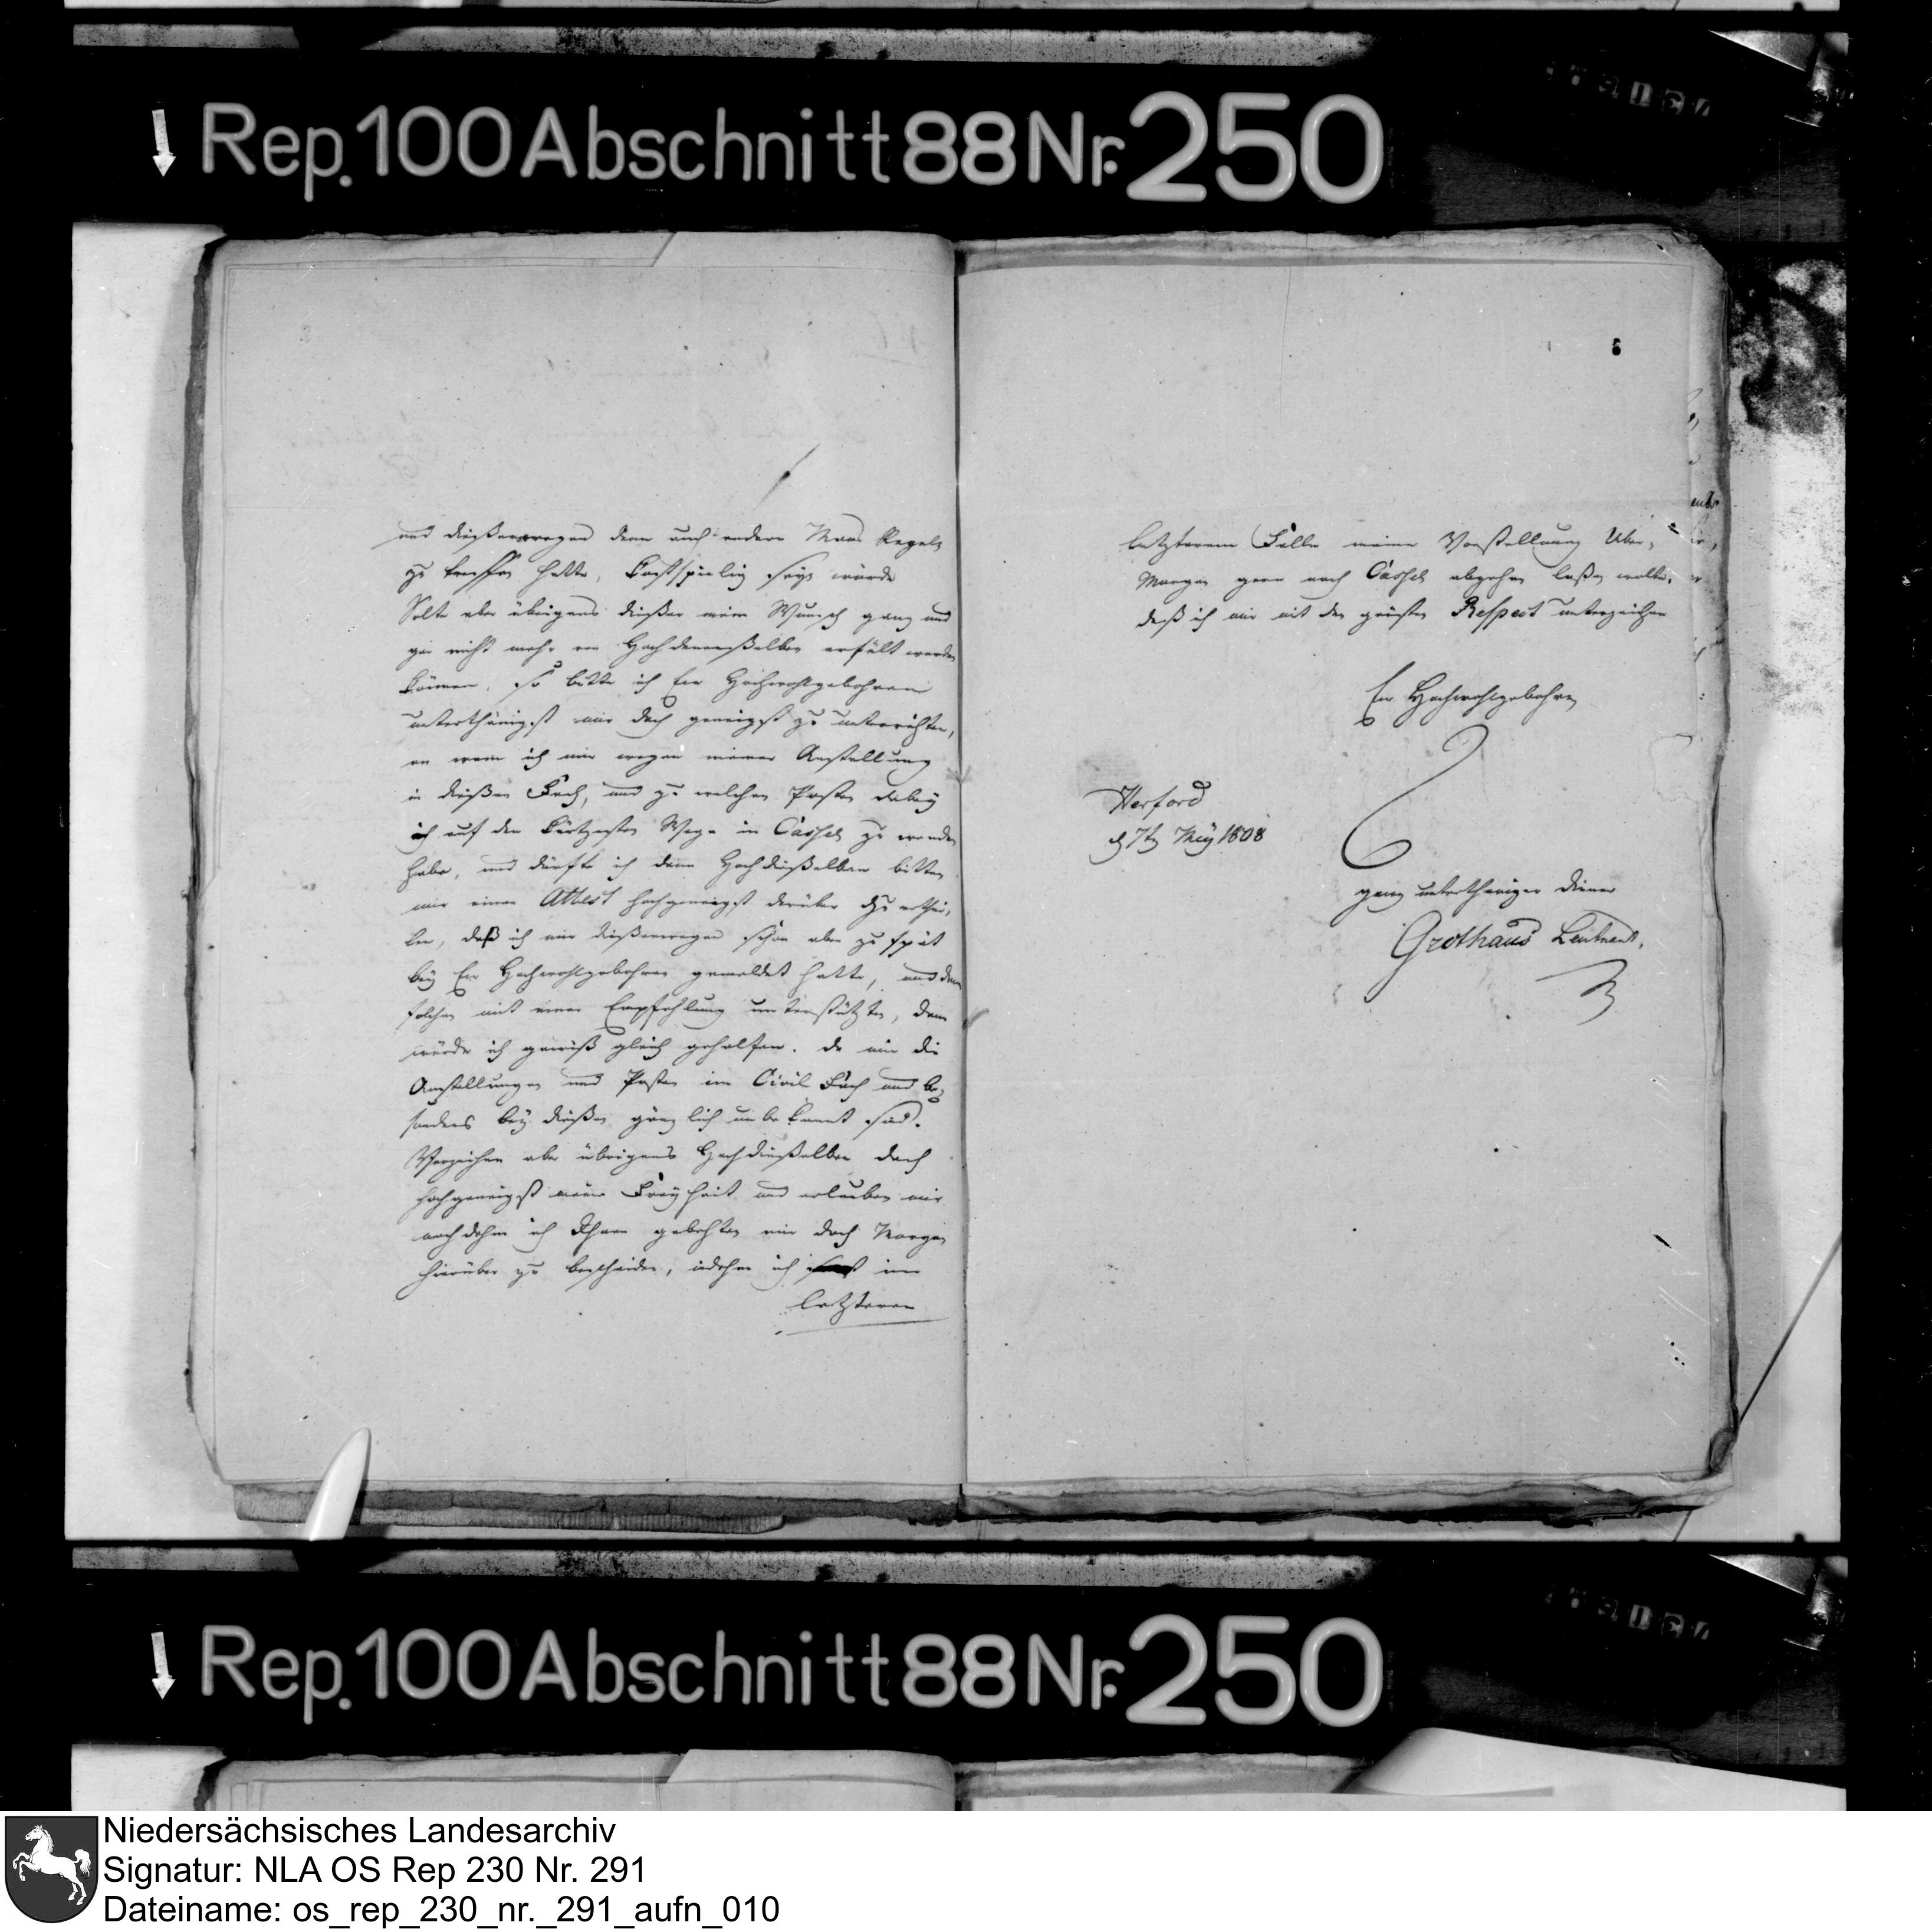 Rep. 100 Abschnitt 88 Nr. 250
und dießerwegen denn auch andere Maas Regeln
zu treffen hätte, Kostspielig seyn würde
Solte aber übrigens dießer mein Wunsch ganz und
gar nicht mehr von Hochdenenselben erfült werden
können, so bitte ich Ew Hochwohlgebohren
unterthänigst mir doch geneigst zu unterrichten,
an wem ich mir wegen meiner Anstellung
in dießen Fach, und zu welchen Posten dabey
ich auf den Kürtzesten Wege in Cassel zu wenden
habe, und dürfte ich dann Hochdießelben bitten
mir einen Attest hochgeneigst darüber zu erthei,
len, daß ich mir dießerwegen schon aber zu spät
bey Ew Hochwohlgebohren gemeldet hatte, und dann
solchen mit einer Empfehlung unterstützten, dann
würde ich gewiß gleich geholfen. da mir die
Anstellungen und Posten im Civil Fach und be,
sonders bey dießen gänzlich unbekannt sind.
Verzeihen aber übrigens Hochdießelben doch
hochgeneigst meine Freyheit und erlauben mir
nachdehm ich Ihnen gebethen mir doch Morgen
hierüber zu bescheiden, indehm ich im
letzteren
6
letzterem Falle meine Vorstellung Über,
Morgen gern nach Cassel abgehen laßen wolte.
daß ich mir mit den grösten Respect unterzeichne
Ew Hochwohlgebohren
Herford
d 7t May 1808
ganz unterthäniger Diener
Grothaus Leutnant.
Rep. 100 Abschnitt 88 Nr. 250
Niedersächsisches Landesarchiv
Signatur: NLA OS Rep 230 Nr. 291
Dateiname: os_rep_230_nr._291_aufn_010